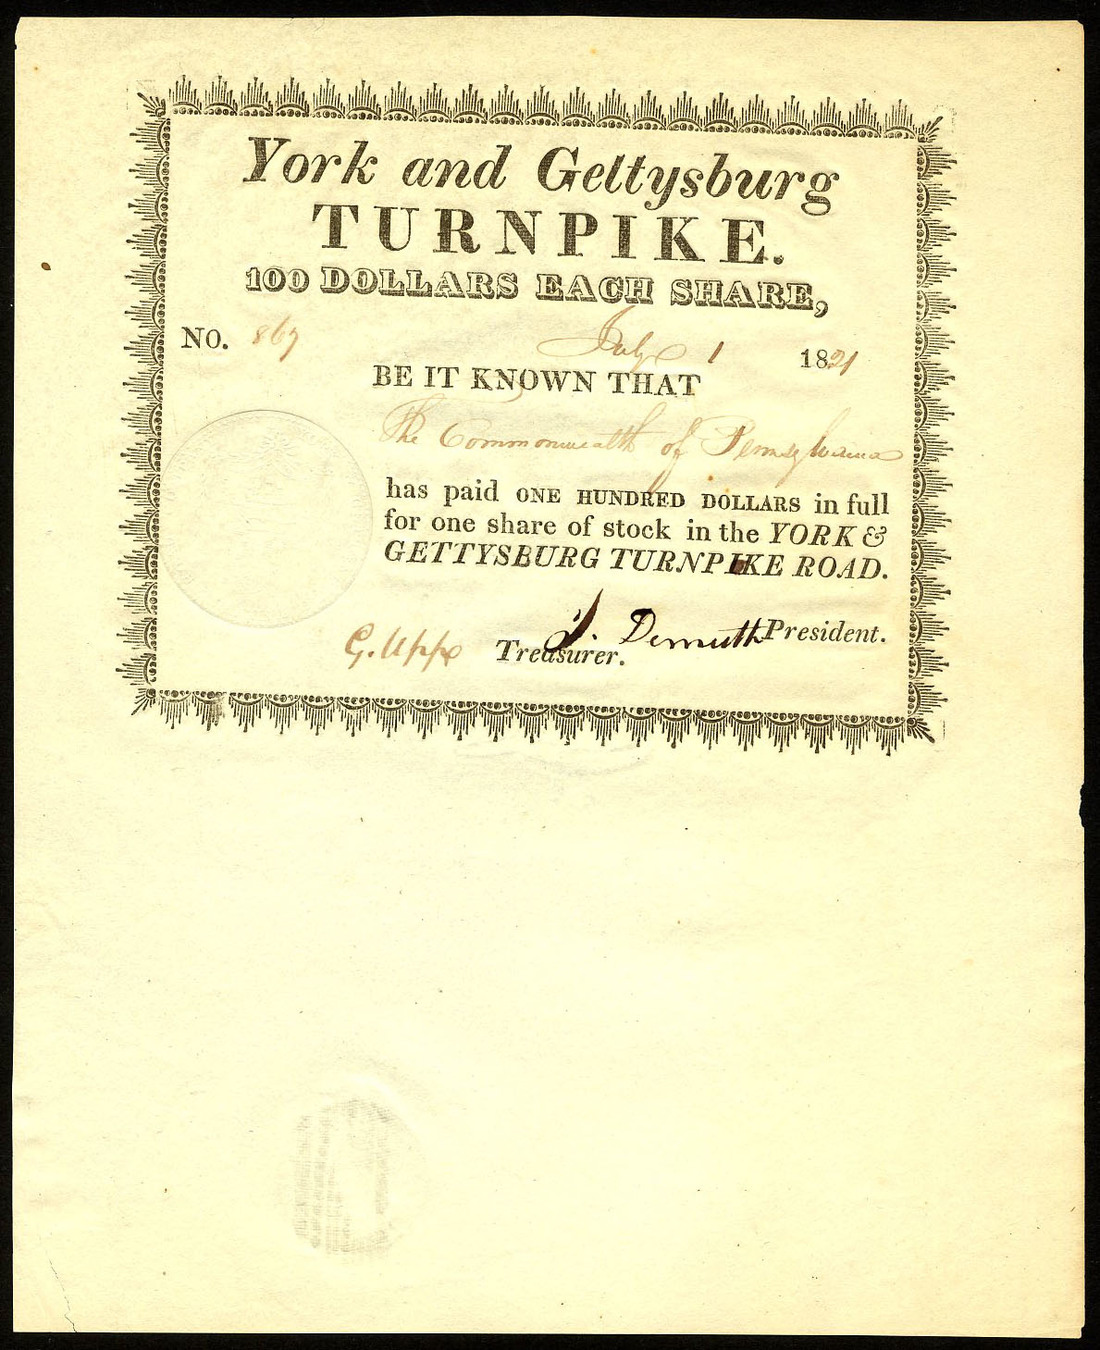 York and Gettysburg
TURNPIKE.
100 DOLLARS EACH SHARE,
NO. 867
July 1 1821
BE IT KNOWN THAT
The Commonwealth of Pennsylvania
has paid ONE HUNDRED DOLLARS in full
for one share of stock in the YORK &
GETTYSBURG TURNPIKE ROAD.
J. Demuth President.
G. Upp Treasurer.